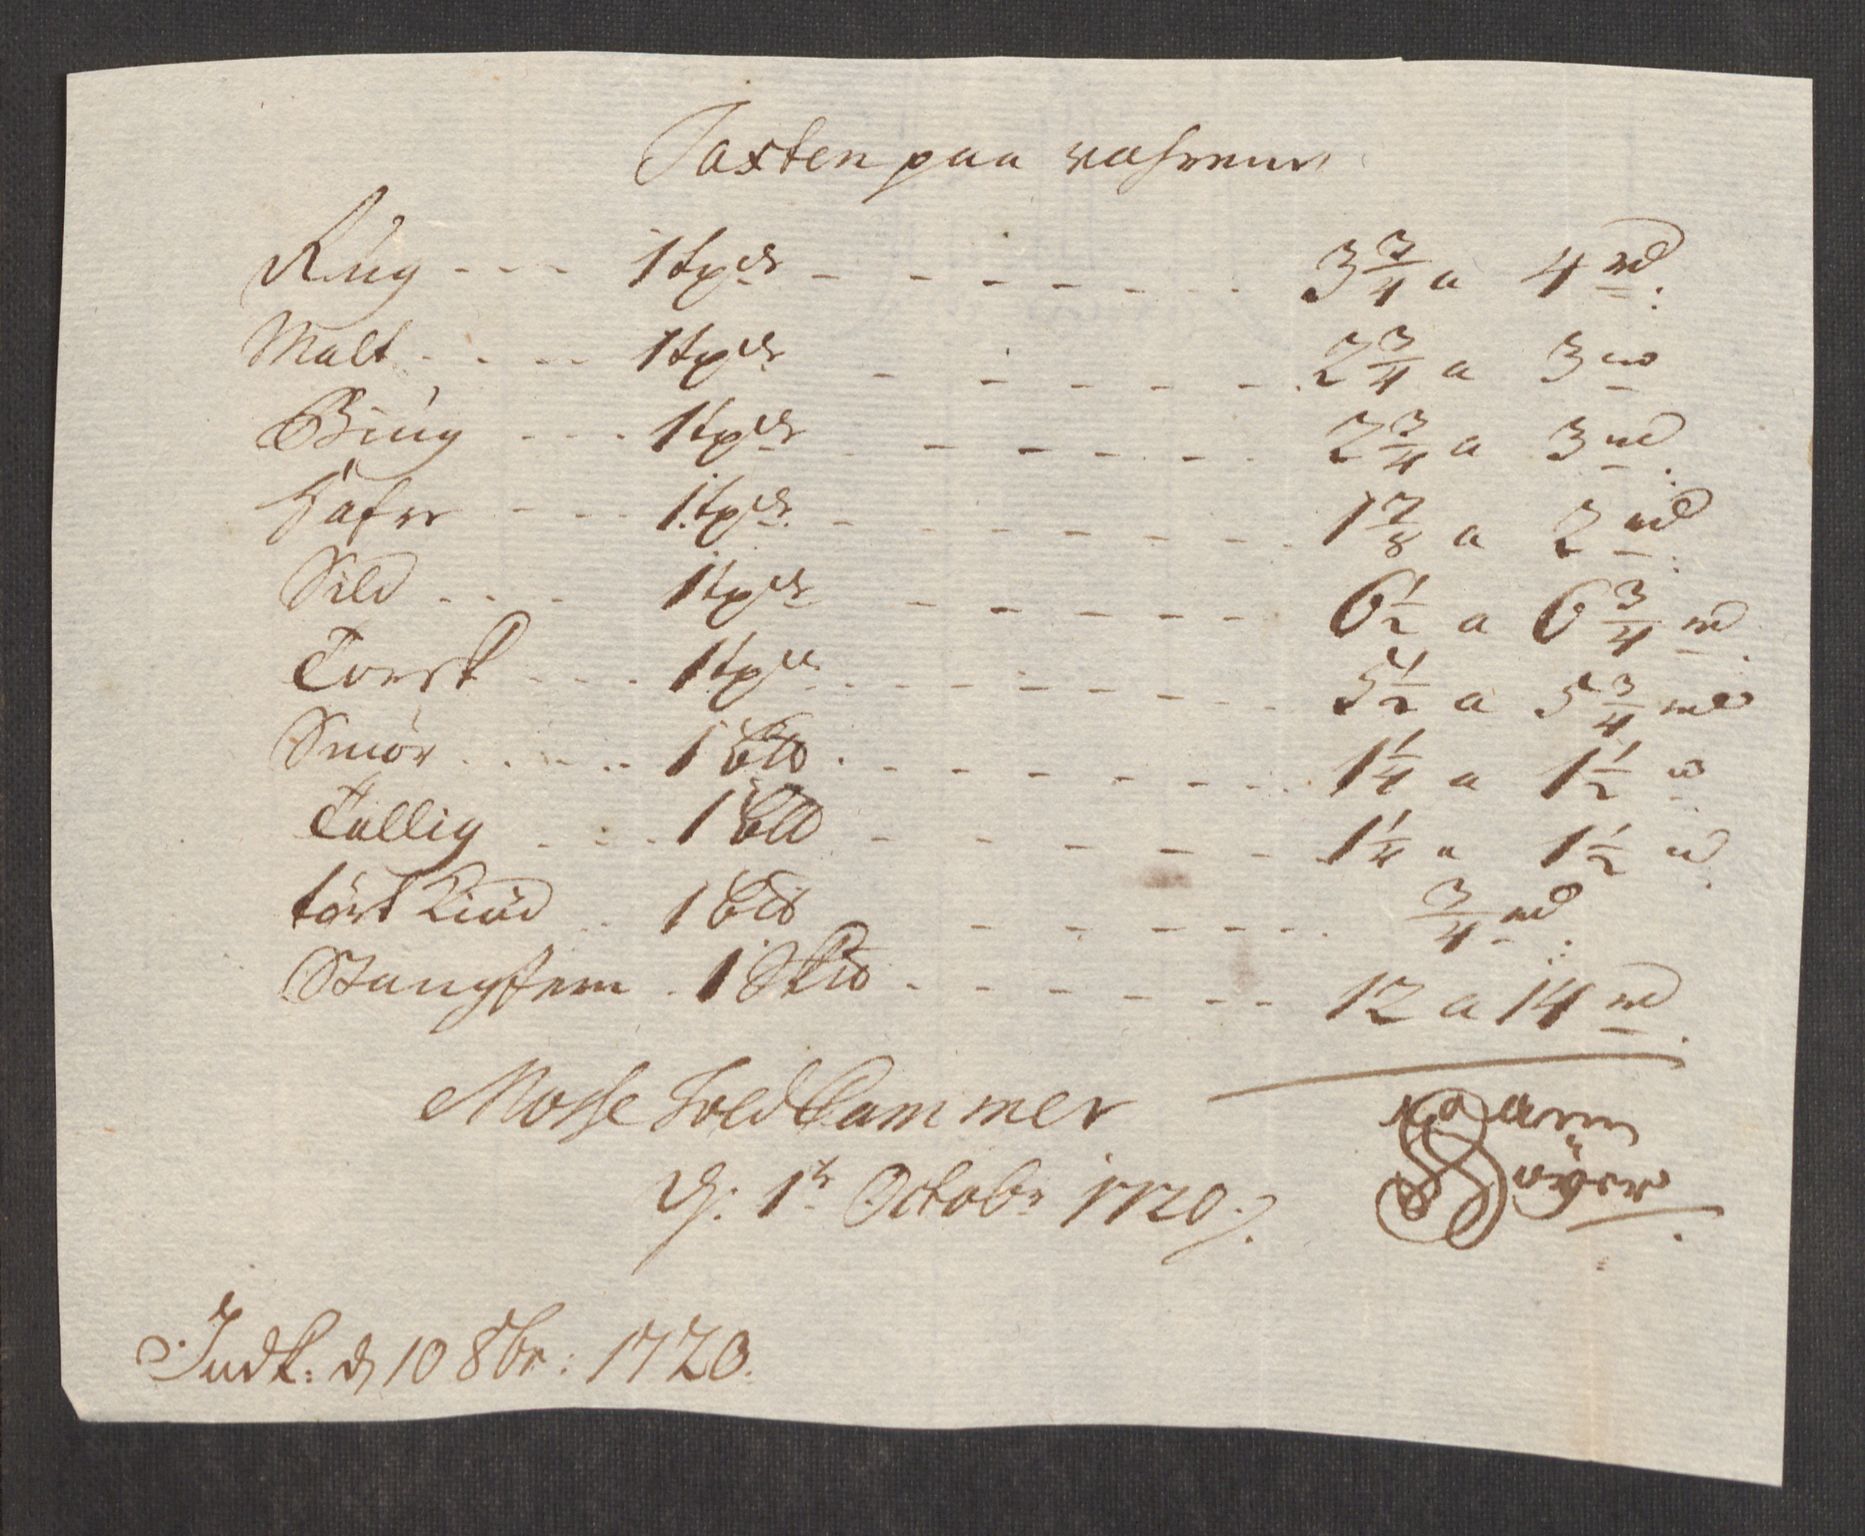 Taxten paa vahrene
Rug - - - 1 tꝑde - - - - - - 3 3/4 a 4 rd.
Malt - - - 1 tꝑde - - - - - - 2 3/4 a 3 rd
Biug - - - 1 tꝑde - - - - - - 2 3/4 a 3 rd.
Hafre - - - 1 tꝑde - - - - - - 1 7/8 a 2 rd.
Sild - - - 1 tꝑde - - - - - - 6 1/2 a 6 3/4 rd.
Torsk - - - 1 tꝑde - - - - - - 5 1/2 a 5 3/4 rd
Smör - - - 1 - - - - - - 1 1/4 a 1 1/2 rd
Tallig - - - 1 - - - - - - 1 1/4 a 1 1/2 rd.
tört Kiöd - - 1 - - - - - - 3/4 rd.
Stangjern - 1 Sk℔ - - - - - - 12 a 14 rd.
Mosse Told Cammer
d: 1te Octobr 1720.
Höyer
Indk: d 10 8br: 1720.